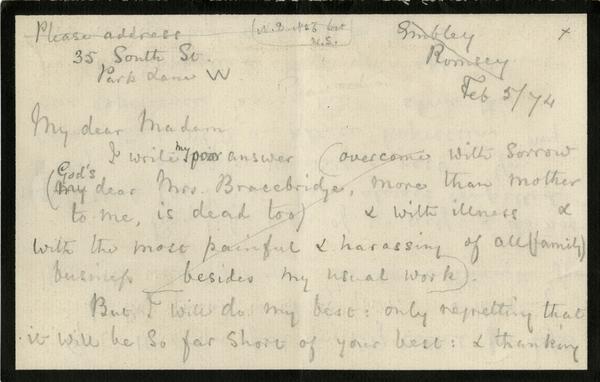 Please address
35 South St.
Park Lane W
Embley
Romsey
Feb 5/74
My dear Madam
I write my poor answer (overcome with sorrow
(God's my dear Mrs. Bracebridge, more than mother
to me, is dead too) & with illness &
with the most painful & harassing of all (family)
business besides my usual work).
But I will do my best: only regretting that
it will be so far short of your best: & thanking